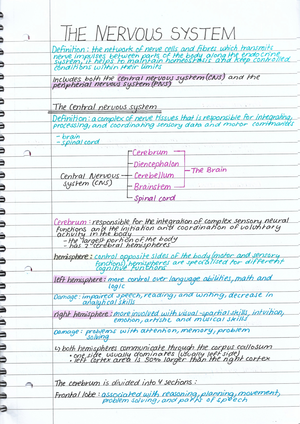 THE NERVOUS SYSTEM
Definition: the network of nerve cells and fibres which transmits
nerve impulses between parts of the body along the endocrine
system, it helps to maintain homeostasis and keep controlled
conditions within their limits
Includes both the central nervous system (CNS) and the
peripheral nervous system (PNS)
The Central nervous system
Definition: a complex of nerve tissues that is responsible for integrating,
processing, and coordinating sensory data and motor commands
- brain
- spinal cord
Central Nervous System (CNS)
Cerebrum
Diencephalon
Cerebellum
Brainstem
Spinal cord
The Brain
Cerebrum: responsible for the integration of complex sensory neural
functions and the initiation and coordination of voluntary
activity in the body
- the largest portion of the body
- has 2 cerebral hemispheres
hemisphere: control opposite sides of the body (motor and sensory
functions), hemispheres are specialised for different
cognitive functions
left hemisphere: more control over language abilities, math and
logic
Damage: impaired speech, reading, and writing, decrease in
analytical skills
right hemisphere: more involved with visual-spatial skills, intuition,
emotion, artistic and musical skills
Damage: problems with attention, memory, problem
solving
↳ both hemispheres communicate through the corpus collosum
• one side usually dominates (usually left side)
• left cortex area is 50% larger than the right cortex
The cerebrum is divided into 4 sections:
Frontal lobe: associated with reasoning, planning, movement,
problem solving, and parts of speech